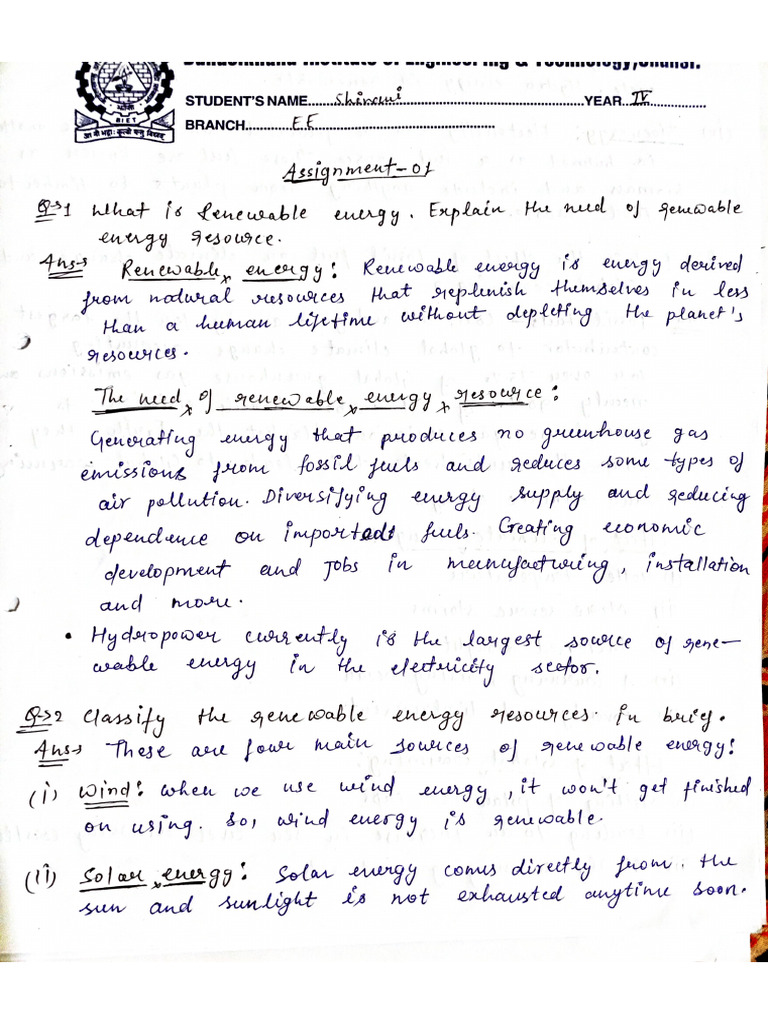 Bundelkhand Institute of Engineering & Technology, Jhansi.
BIET
STUDENT'S NAME.....Shivani.....YEAR...IV
BRANCH.....E.E.....
Assignment-01
Q→1 What is Renewable energy. Explain the need of renewable
energy resource.
Ans→ Renewable energy: Renewable energy is energy derived
from natural resources that replenish themselves in less
than a human lifetime without depleting the planet's
resources.
The need of renewable energy resource:
Generating energy that produces no greenhouse gas
emissions from fossil fuels and reduces some types of
air pollution. Diversifying energy supply and reducing
dependence on imported fuels. Creating economic
development and jobs in manufacturing, installation
and more.
• Hydropower currently is the largest source of rene-
wable energy in the electricity sector.
Q→2 Classify the renewable energy resources. in brief.
Ans→ These are four main sources of renewable energy:
(i) Wind: when we use wind energy, it won't get finished
on using. So, wind energy is renewable.
(ii) Solar energy: Solar energy comes directly from the
sun and sunlight is not exhausted anytime soon.